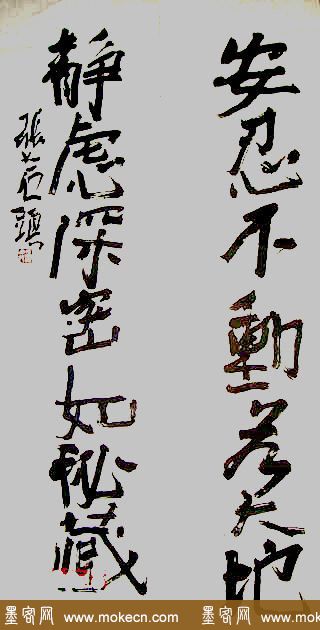 安忍不動若大地
静虑深密如秘藏
墨客网 www.mokecn.com 墨客网 www.mokecn.com